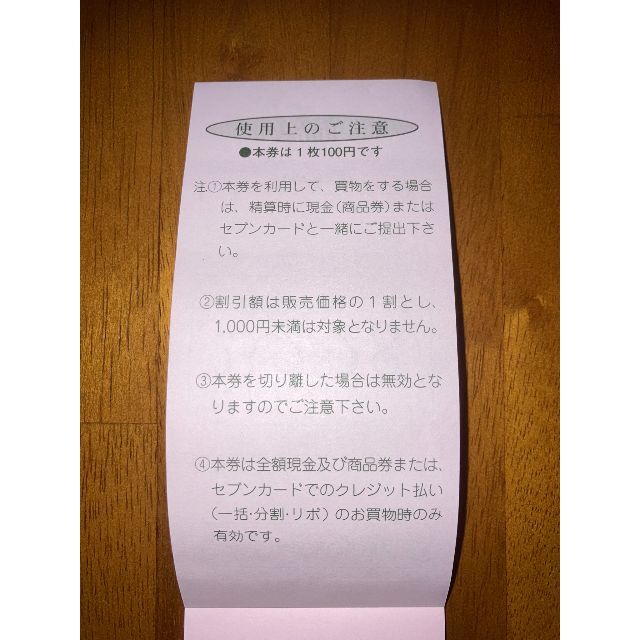 使用上のご注意
●本券は1枚100円です
注.①本券を利用して、買物をする場合
は、精算時に現金(商品券)または
セブンカードと一緒にご提出下さ
い。
②割引額は販売価格の1割とし、
1,000円未満は対象となりません。
③本券を切り離した場合は無効とな
りますのでご注意下さい。
④本券は全額現金及び商品券または、
セブンカードでのクレジット払い
(一括・分割・リボ)のお買物時のみ
有効です。